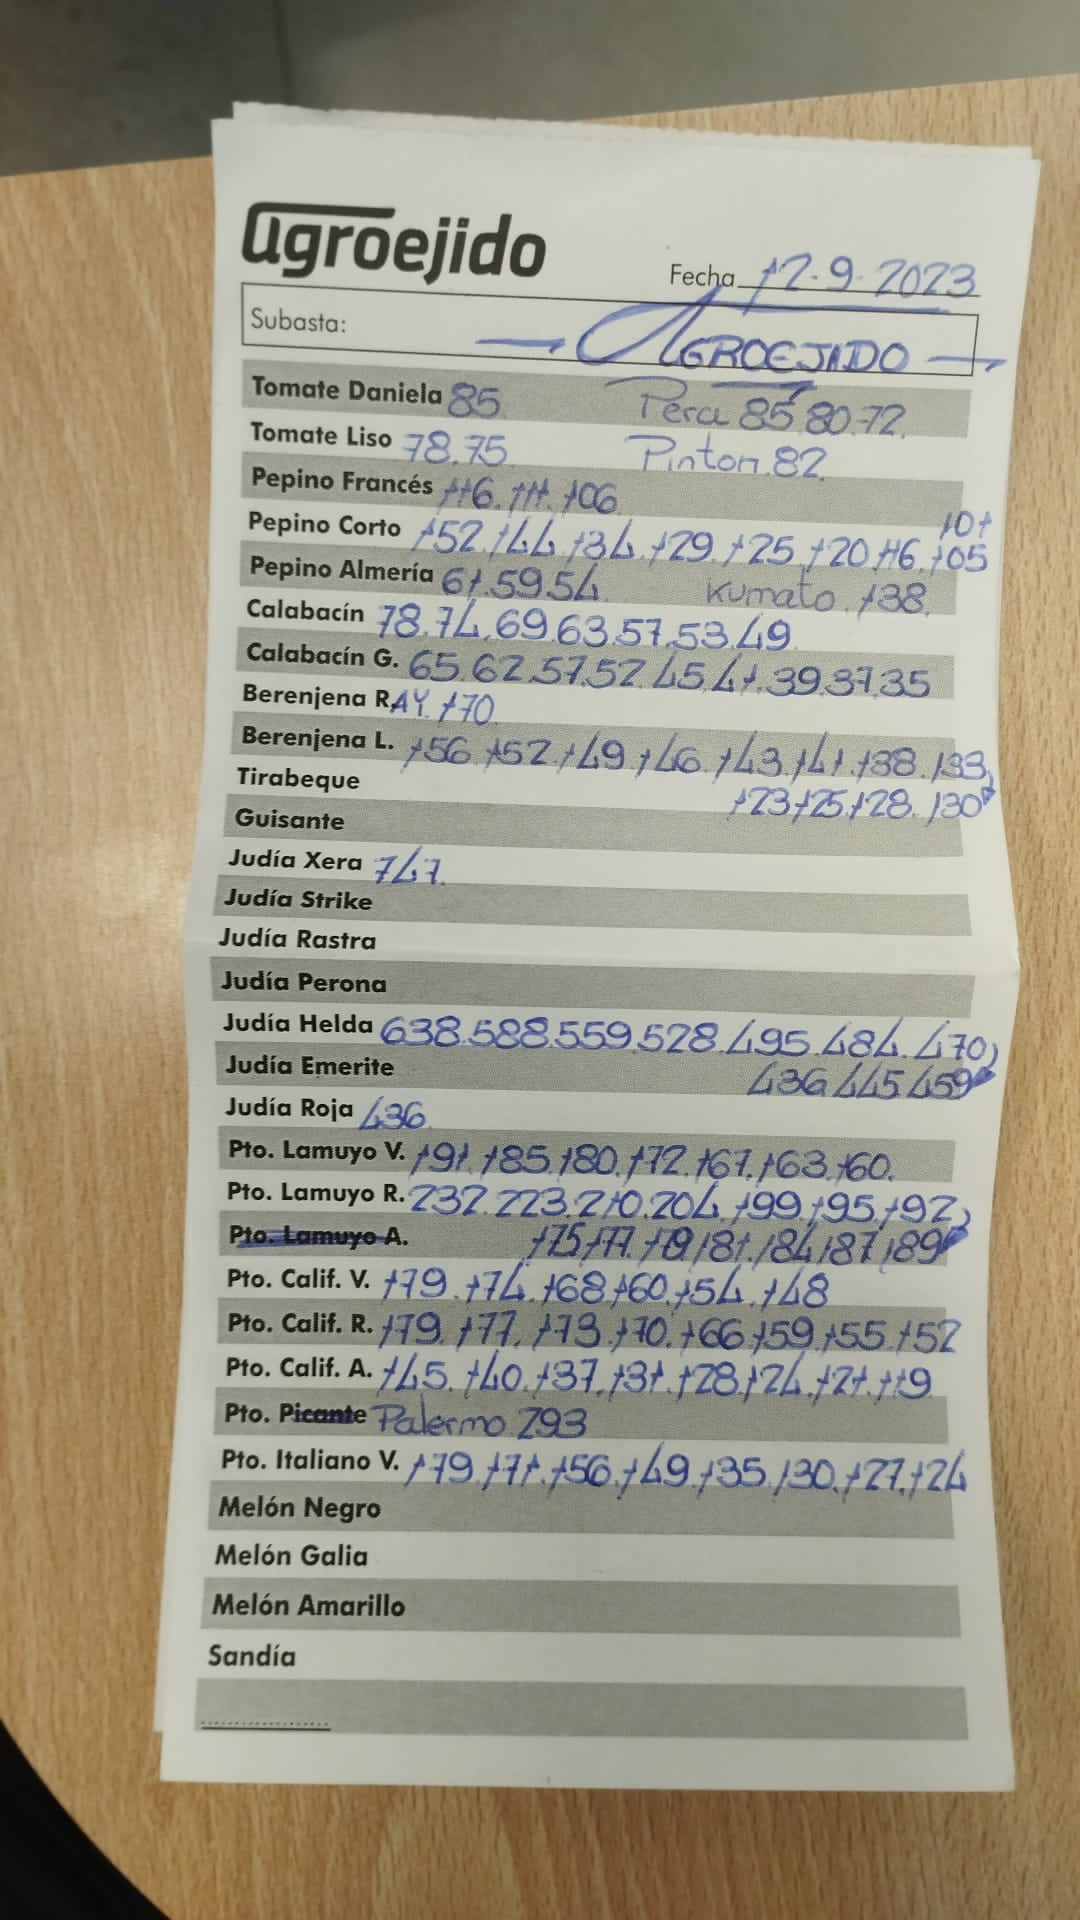 agroejido
Fecha 12-9-2023
Subasta: AGROEJIDO
Tomate Daniela 85. Pera 85.80.72.
Tomate Liso 78.75. Pinton.82.
Pepino Francés 116.111.106
101
Pepino Corto 152.144.134.129.125.120.116.105
Pepino Almería 61.59.54. Kumato.138.
Calabacín 78.74.69.63.57.53.49
Calabacín G. 65.62.57.52.45.41.39.37.35
Berenjena R. AY.170.
Berenjena L. 156.152.149.146.143.141.138.133
Tirabeque
123.125.128.130
Guisante
Judía Xera 747.
Judía Strike
Judía Rastra
Judía Perona
Judía Helda 638.588.559.528.495.484.470
Judía Emerite 436.445.459
Judía Roja 436
Pto. Lamuyo V. 191.185.180.172.167.163.160.
Pto. Lamuyo R. 232.223.210.204.199.195.192
Pto. Lamuyo A. 175.177.179.181.184.187.189
Pto. Calif. V. 179.174.168.160.154.148
Pto. Calif. R. 179.177.173.170.166.159.155.152
Pto. Calif. A. 145.140.137.131.128.124.121.119
Pto. Picante Palermo 293
Pto. Italiano V. 179.171.156.149.135.130.127.124
Melón Negro
Melón Galia
Melón Amarillo
Sandía